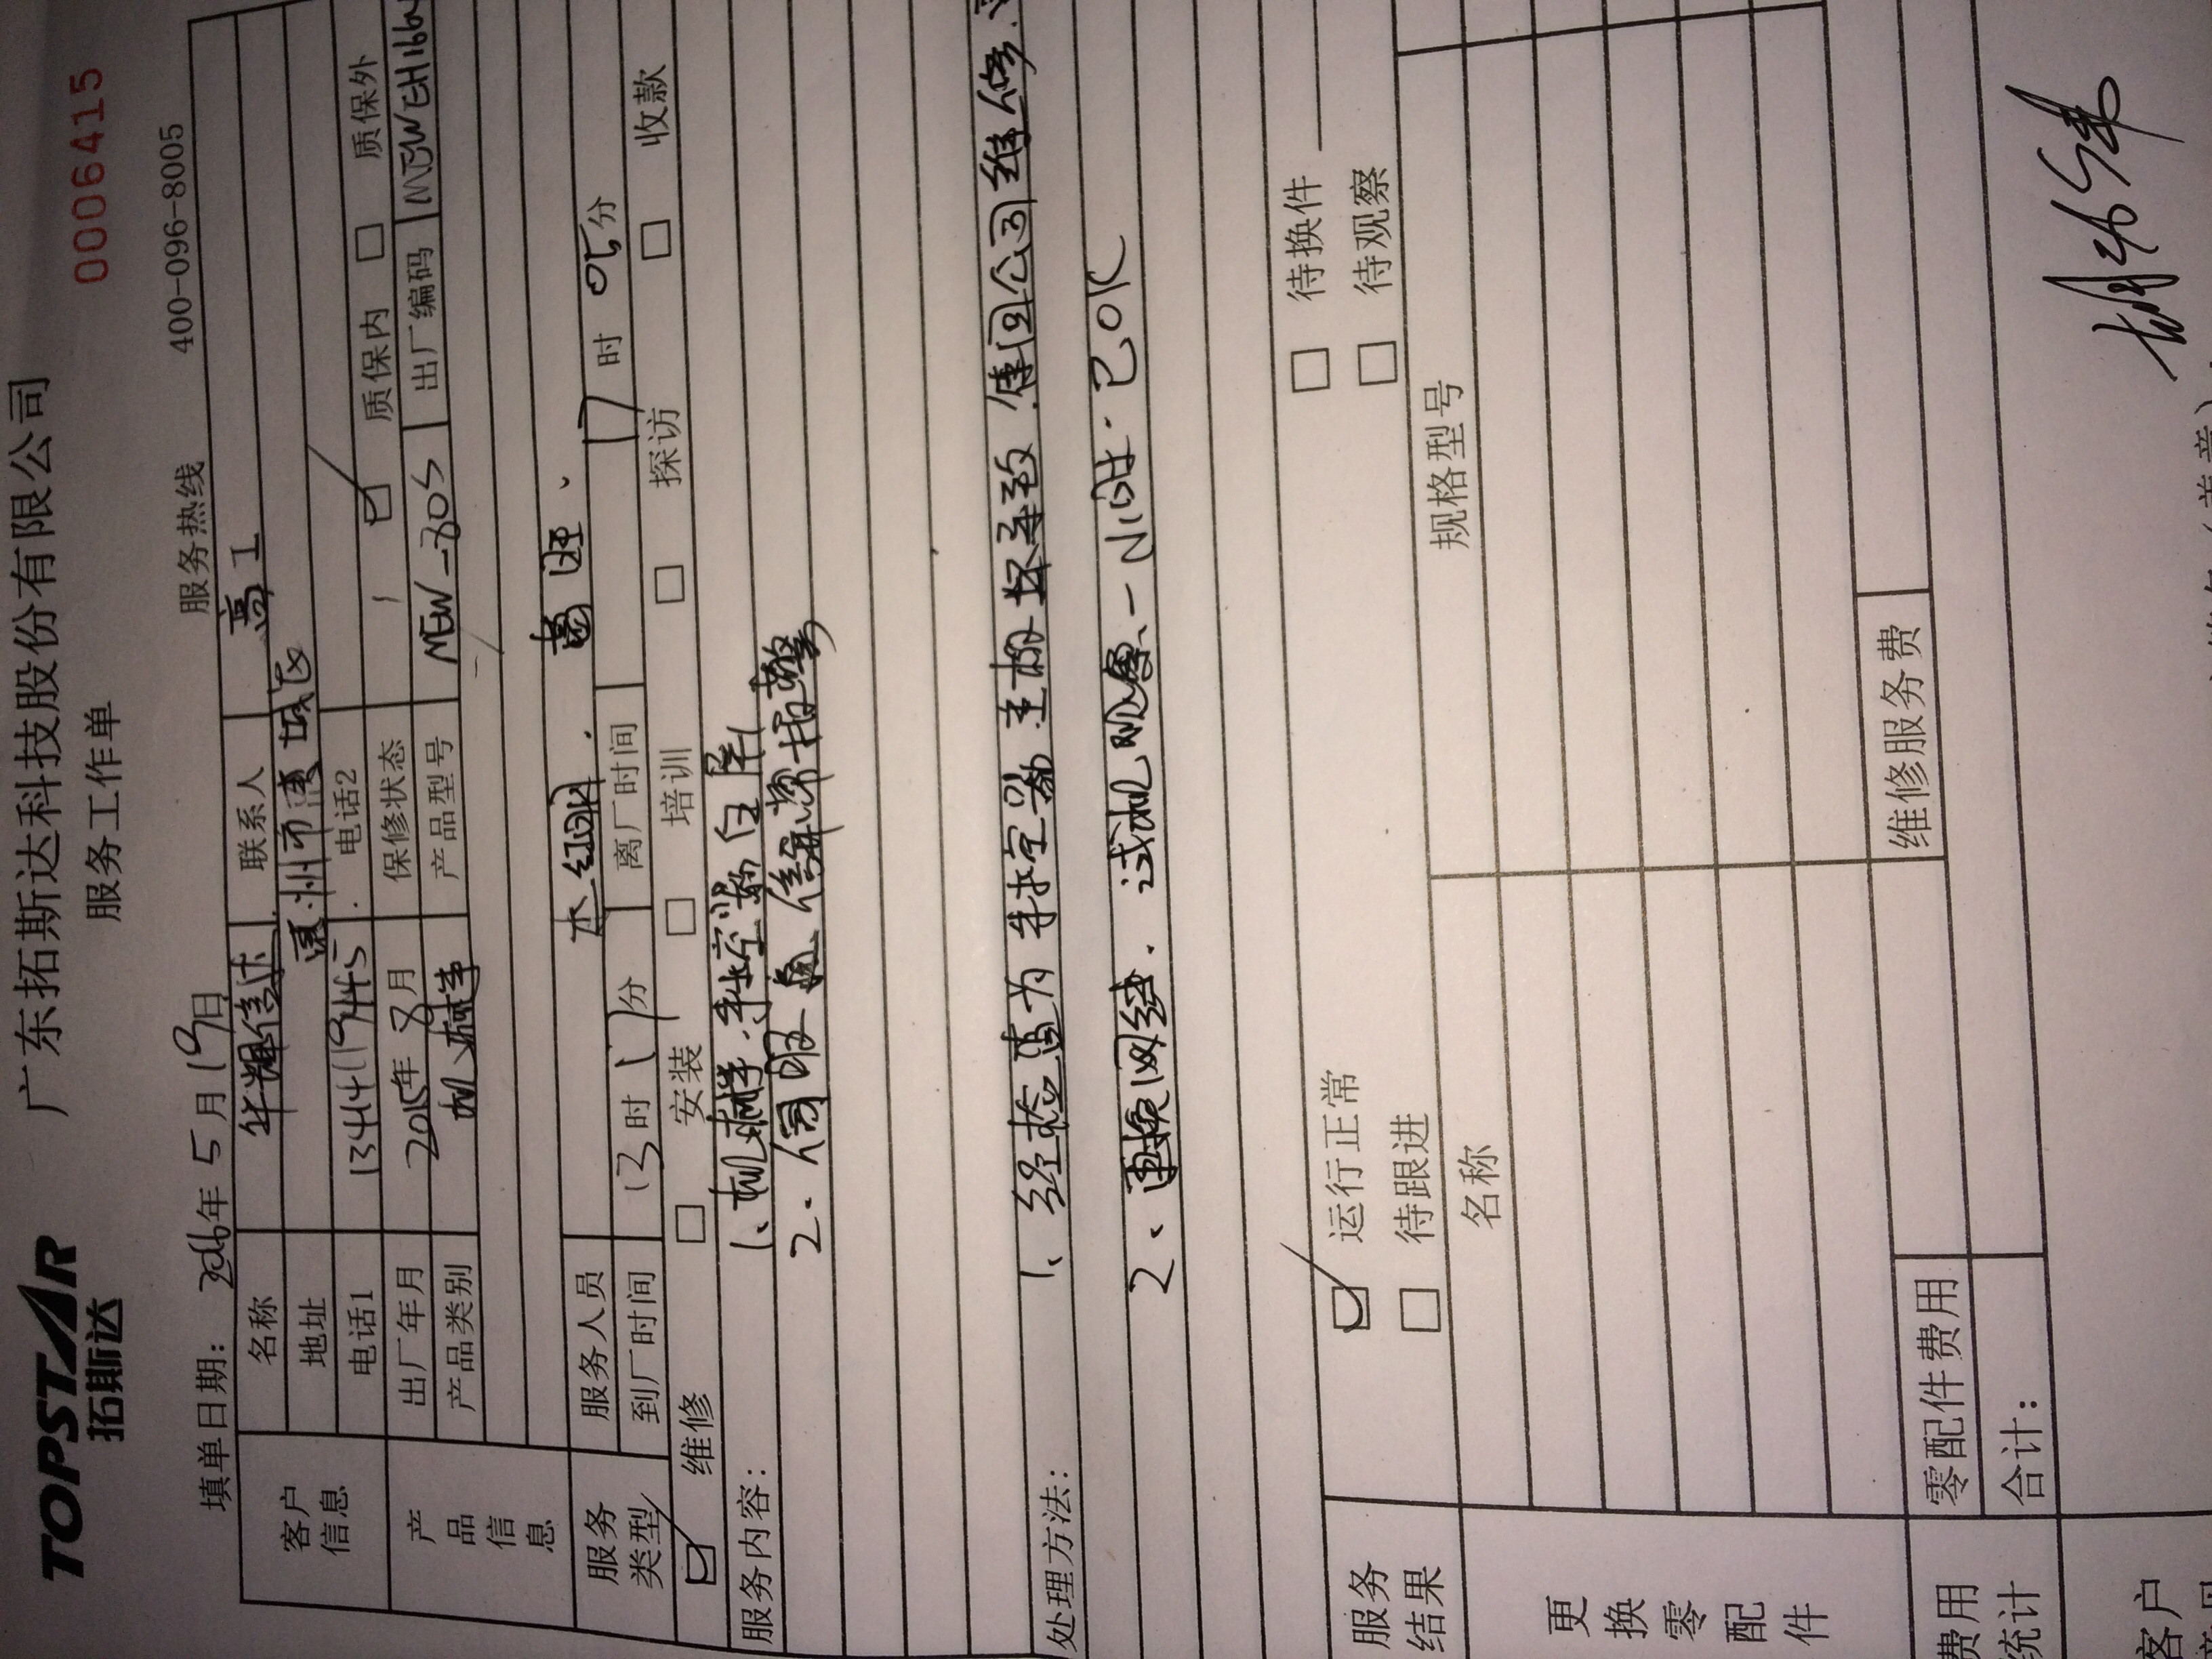 TOPSTAR 广东拓斯达科技股份有限公司
拓斯达 服务工作单 0006415
填单日期: 2016年 5月19日 服务热线 400-096-8005
客户信息 名称 华辉信达 联系人 高工
地址 惠州市惠城区
电话1 13444119445 电话2
产品信息 出厂年月 2015年 8月 保修状态 质保内 □ 质保外
产品类别 机械手 产品型号 MEW-80S 出厂编码
服务类型 服务人员
到厂时间 13时 11分 离厂时间 17时 05分
维修 □ 安装 □ 培训 □ 探访 □ 收款
服务内容: 1、机械手.手控器白屏
2.伺服 信号异常报警
处理方法: 1、经检查为手控器主板坏导致.待回公司维修.
2、更换网线.试机观察一小时.已OK
服务结果 运行正常 □ 待换件
□ 待跟进 □ 待观察
更换零配件 名称 规格型号
费用统计 零配件费用 维修服务费
合计:
客户